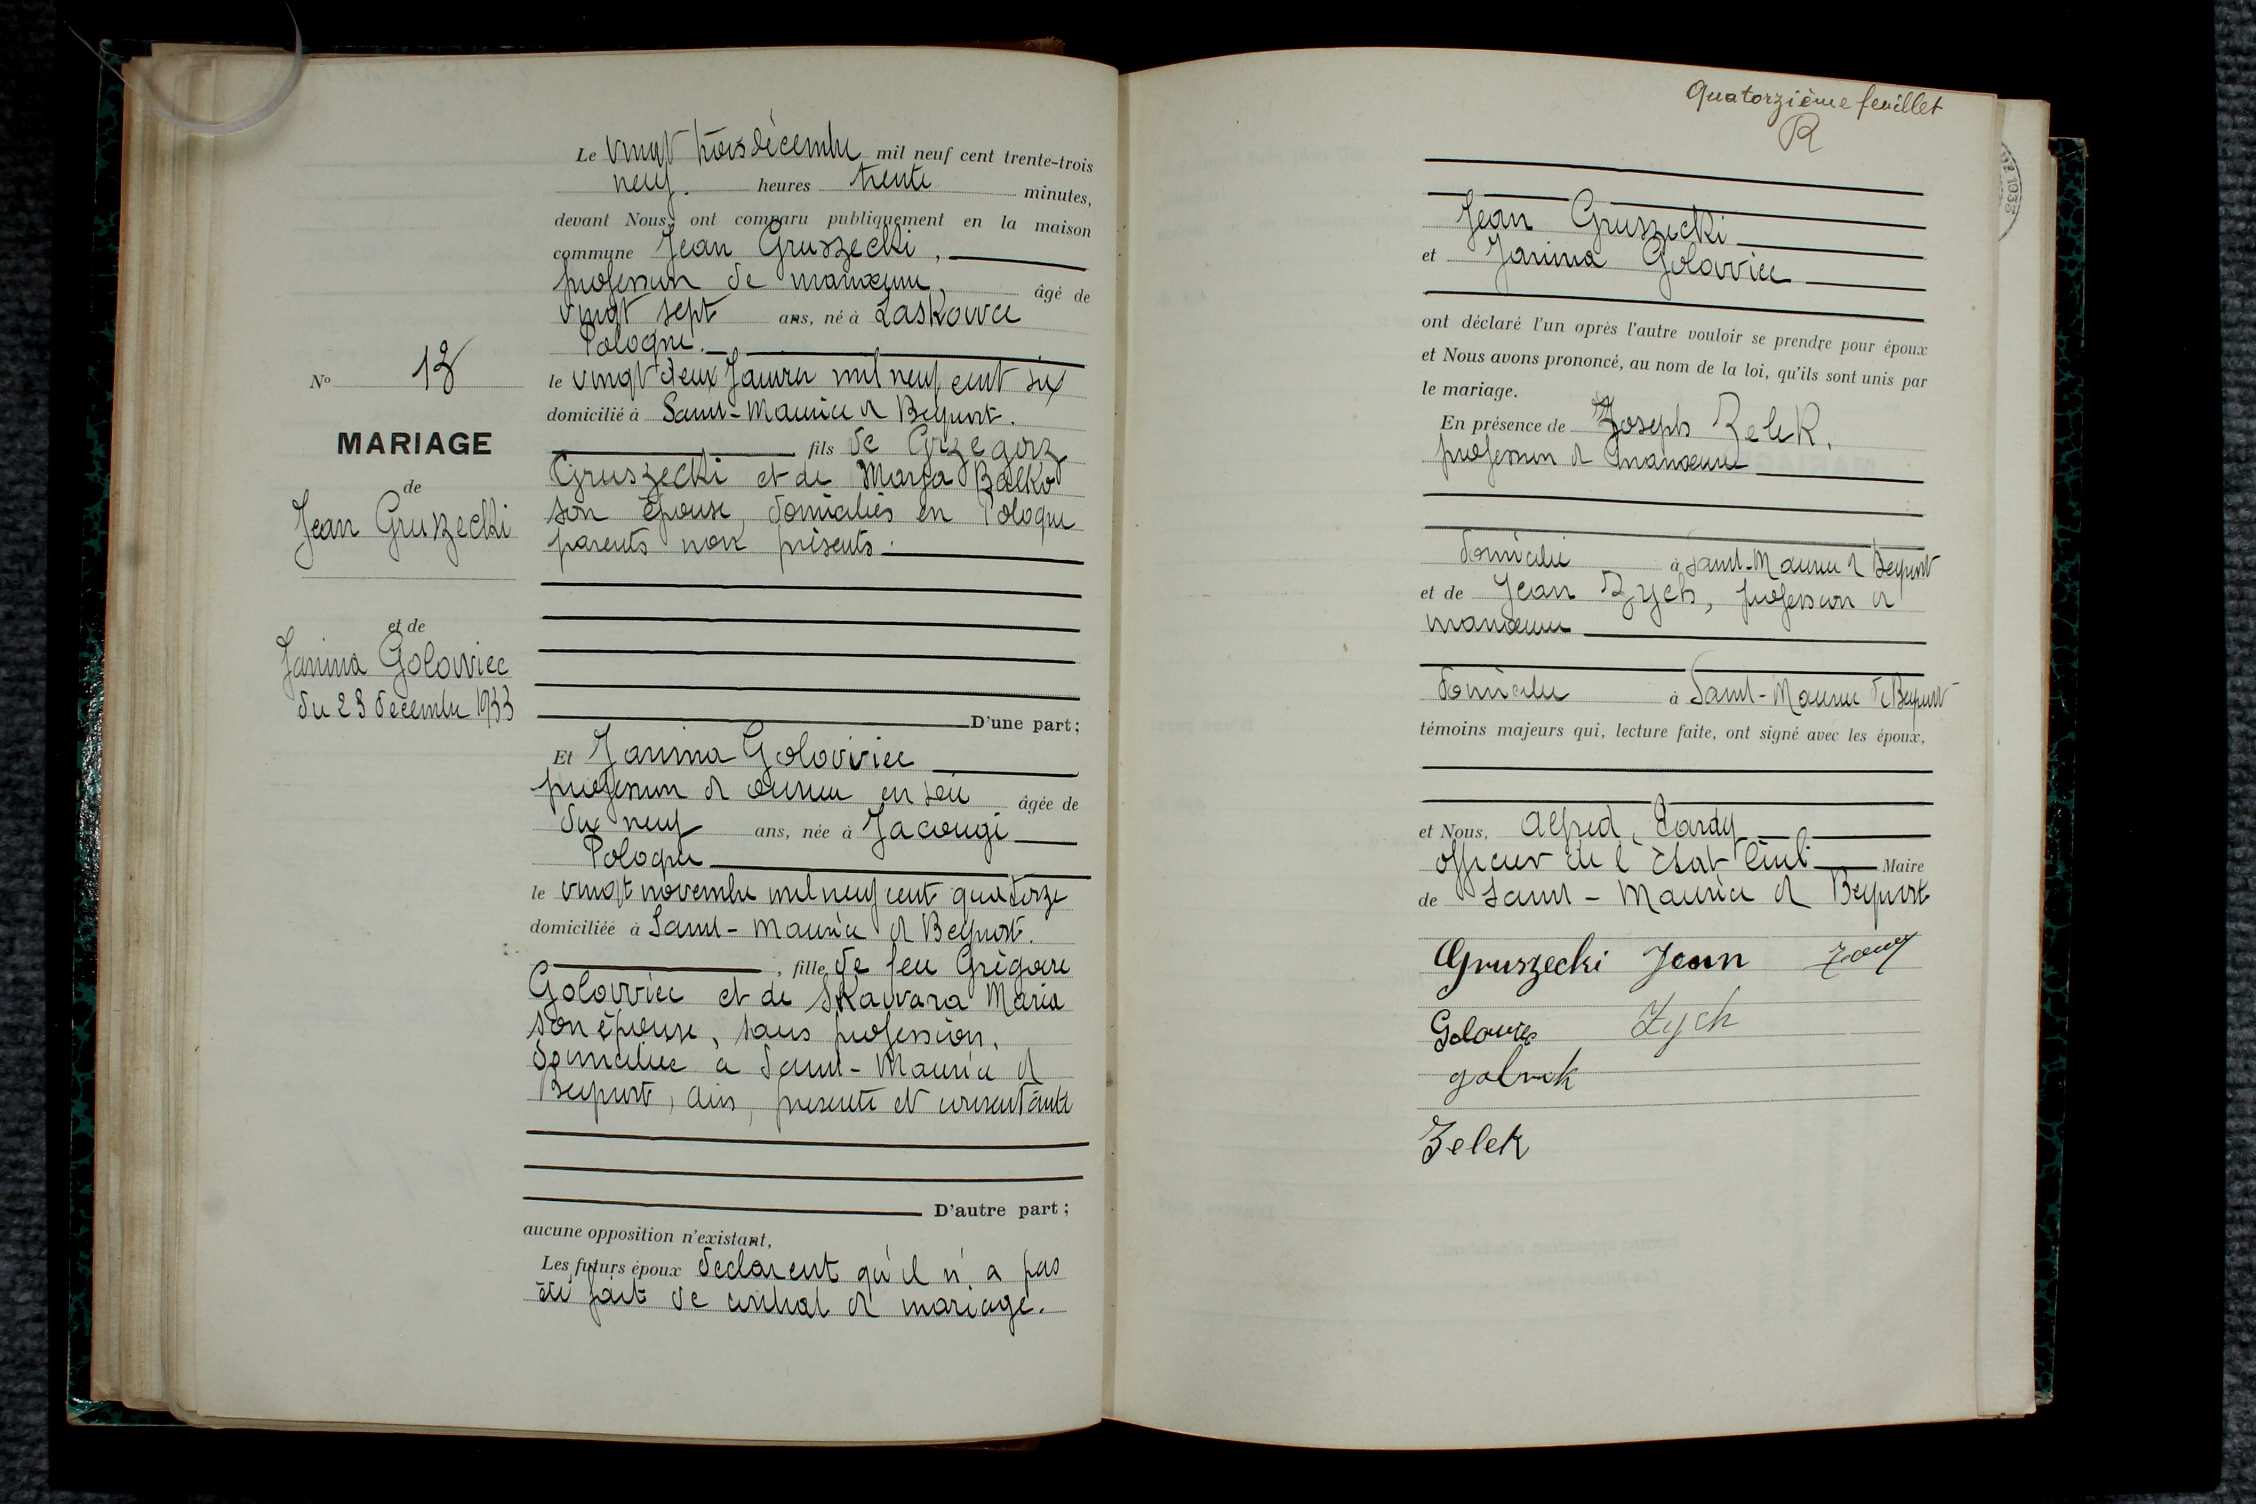 Le vingt trois décembre mil neuf cent trente-trois
neuf. heures trente minutes,
devant Nous, ont comparu publiquement en la maison
commune Jean Gruszecki,
profession de manœuvre, âgé de
vingt sept ans, né à Laskowce
Pologne.
le vingt deux Janvier mil neuf cent six
domicilié à Saint-Maurice de Beynost.
fils de Grzegorz
Gruszecki et de Marya Balko
son épouse, domiciliés en Pologne
parents non présents.
D'une part;
Nº 13
MARIAGE
de
Jean Gruszecki
et de
Janina Golowiec
du 23 décembre 1933
Et Janina Golowiec
profession de ouvrière en soie âgée de
dix neuf ans, née à Jacougi
Pologne
le vingt novembre mil neuf cent quatorze
domiciliée à Saint-Maurice de Beynost.
, fille de feu Grégoire
Golowiec et de Skawara Maria
son épouse, sans profession,
domiciliée à Saint-Maurice de
Beynost, Ain, présente et consentante
D'autre part;
aucune opposition n'existant,
Les futurs époux déclarent qu'il n'a pas
été fait de contrat de mariage.
Quatorzième feuillet
R
Jean Gruszecki
et Janina Golowiec
ont déclaré l'un après l'autre vouloir se prendre pour époux
et Nous avons prononcé, au nom de la loi, qu'ils sont unis par
le mariage.
En présence de Joseph Zelek,
profession de manœuvre
domicilié à Saint-Maurice de Beynost
et de Jean Zych, profession de
manœuvre
domicilié à Saint-Maurice de Beynost
témoins majeurs qui, lecture faite, ont signé avec les époux,
et Nous, Alfred,
officier de l'État Civil Maire
de Saint-Maurice de Beynost
Gruszecki Jean
Golowiec Zych
Zelek